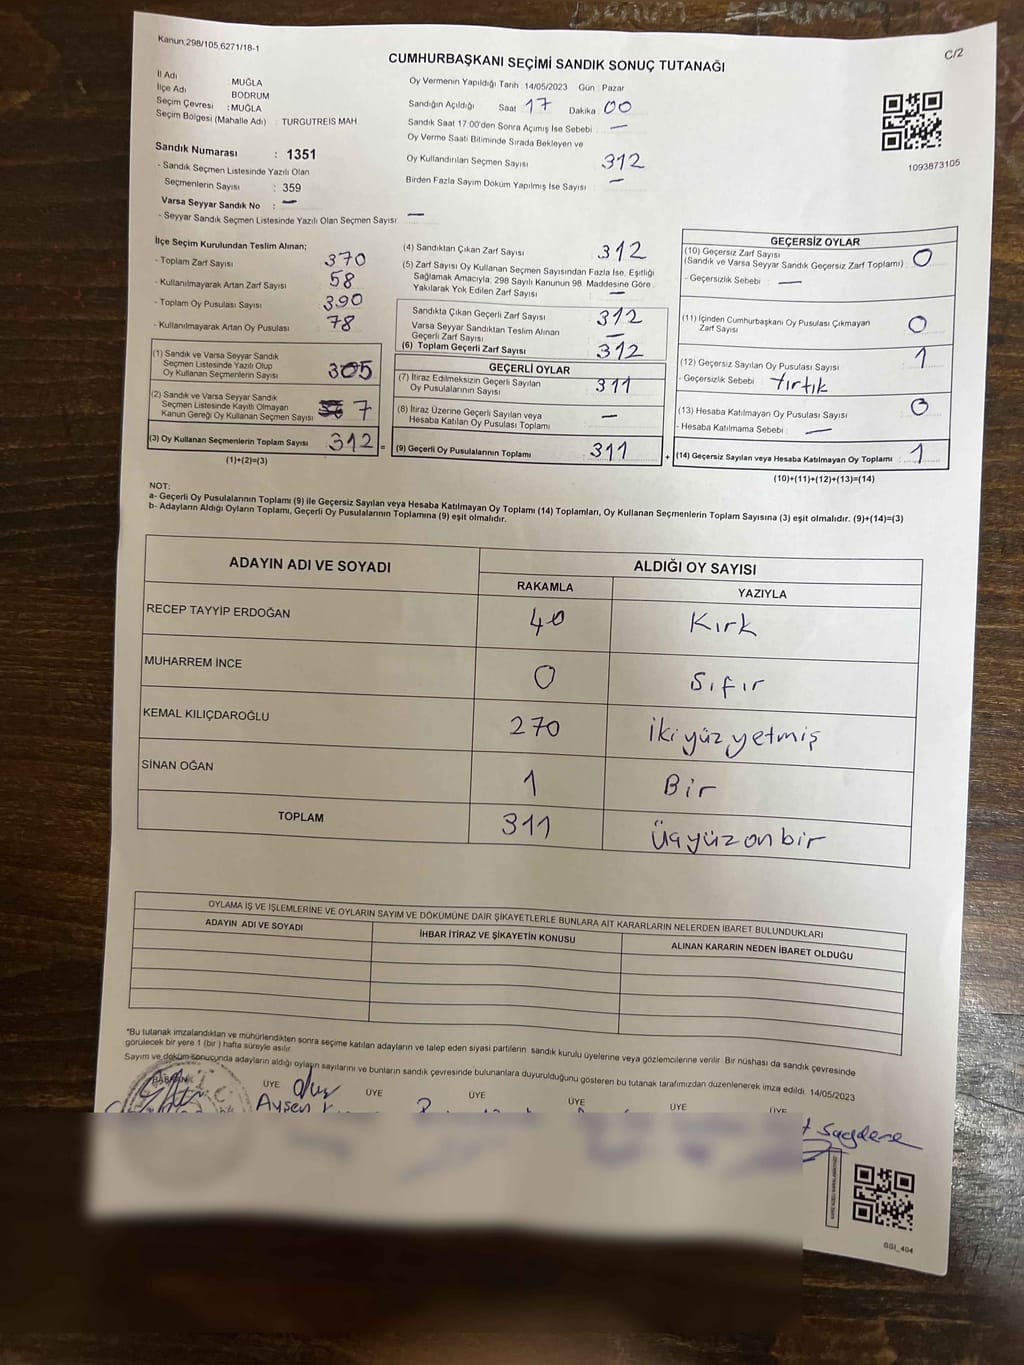 Kanun:298/105,6271/18-1
C/2
CUMHURBAŞKANI SEÇİMİ SANDIK SONUÇ TUTANAĞI
İl Adı : MUĞLA
İlçe Adı : BODRUM
Seçim Çevresi : MUĞLA
Seçim Bölgesi (Mahalle Adı) : TURGUTREİS MAH.
Sandık Numarası : 1351
- Sandık Seçmen Listesinde Yazılı Olan
Seçmenlerin Sayısı : 359
Varsa Seyyar Sandık No : —
- Seyyar Sandık Seçmen Listesinde Yazılı Olan Seçmen Sayısı —
Oy Vermenin Yapıldığı Tarih : 14/05/2023 Gün : Pazar
Sandığın Açıldığı Saat 17 Dakika 00
Sandık Saat 17.00'den Sonra Açımış İse Sebebi : —
Oy Verme Saati Bitiminde Sırada Bekleyen ve
Oy Kullandırılan Seçmen Sayısı 312
Birden Fazla Sayım Döküm Yapılmış İse Sayısı : —
1093873105
İlçe Seçim Kurulundan Teslim Alınan;
- Toplam Zarf Sayısı 370
- Kullanılmayarak Artan Zarf Sayısı 58
- Toplam Oy Pusulası Sayısı 390
- Kullanılmayarak Artan Oy Pusulası 78
(1) Sandık ve Varsa Seyyar Sandık
Seçmen Listesinde Yazılı Olup
Oy Kullanan Seçmenlerin Sayısı 305
(2) Sandık ve Varsa Seyyar Sandık
Seçmen Listesinde Kayıtlı Olmayan
Kanun Gereği Oy Kullanan Seçmen Sayısı 7
(3) Oy Kullanan Seçmenlerin Toplam Sayısı 312 =
(1)+(2)=(3)
(4) Sandıktan Çıkan Zarf Sayısı 312
(5) Zarf Sayısı Oy Kullanan Seçmen Sayısından Fazla İse, Eşitliği
Sağlamak Amacıyla, 298 Sayılı Kanunun 98. Maddesine Göre
Yakılarak Yok Edilen Zarf Sayısı —
Sandıkta Çıkan Geçerli Zarf Sayısı 312
Varsa Seyyar Sandıktan Teslim Alınan
Geçerli Zarf Sayısı —
(6) Toplam Geçerli Zarf Sayısı 312
GEÇERLİ OYLAR
(7) İtiraz Edilmeksizin Geçerli Sayılan
Oy Pusulalarının Sayısı 311
(8) İtiraz Üzerine Geçerli Sayılan veya
Hesaba Katılan Oy Pusulası Toplamı —
(9) Geçerli Oy Pusulalarının Toplamı 311 +
GEÇERSİZ OYLAR
(10) Geçersiz Zarf Sayısı
(Sandık ve Varsa Seyyar Sandık Geçersiz Zarf Toplamı) 0
- Geçersizlik Sebebi : —
(11) İçinden Cumhurbaşkanı Oy Pusulası Çıkmayan
Zarf Sayısı 0
(12) Geçersiz Sayılan Oy Pusulası Sayısı 1
- Geçersizlik Sebebi : Yırtık
(13) Hesaba Katılmayan Oy Pusulası Sayısı 0
- Hesaba Katılmama Sebebi : —
(14) Geçersiz Sayılan veya Hesaba Katılmayan Oy Toplamı 1
(10)+(11)+(12)+(13)=(14)
NOT:
a- Geçerli Oy Pusulalarının Toplamı (9) ile Geçersiz Sayılan veya Hesaba Katılmayan Oy Toplamı (14) Toplamları, Oy Kullanan Seçmenlerin Toplam Sayısına (3) eşit olmalıdır. (9)+(14)=(3)
b- Adayların Aldığı Oyların Toplamı, Geçerli Oy Pusulalarının Toplamına (9) eşit olmalıdır.
ADAYIN ADI VE SOYADI ALDIĞI OY SAYISI
RAKAMLA YAZIYLA
RECEP TAYYİP ERDOĞAN 40 Kırk
MUHARREM İNCE 0 Sıfır
KEMAL KILIÇDAROĞLU 270 İkiyüzyetmiş
SİNAN OĞAN 1 Bir
TOPLAM 311 Üçyüzonbir
OYLAMA İŞ VE İŞLEMLERİNE VE OYLARIN SAYIM VE DÖKÜMÜNE DAİR ŞİKAYETLERLE BUNLARA AİT KARARLARIN NELERDEN İBARET BULUNDUKLARI
ADAYIN ADI VE SOYADI İHBAR İTİRAZ VE ŞİKAYETİN KONUSU ALINAN KARARIN NEDEN İBARET OLDUĞU
*Bu tutanak imzalandıktan ve mühürlendikten sonra seçime katılan adayların ve talep eden siyasi partilerin sandık kurulu üyelerine veya gözlemcilerine verilir. Bir nüshası da sandık çevresinde
görülecek bir yere 1 (bir) hafta süreyle asılır.
Sayım ve döküm sonucunda adayların aldığı oyların sayılarını ve bunların sandık çevresinde bulunanlara duyurulduğunu gösteren bu tutanak tarafımızdan düzenlenerek imza edildi. 14/05/2023
BAŞKAN ÜYE ÜYE ÜYE ÜYE ÜYE ÜYE
Ayşen
Sagdere
SSI_404